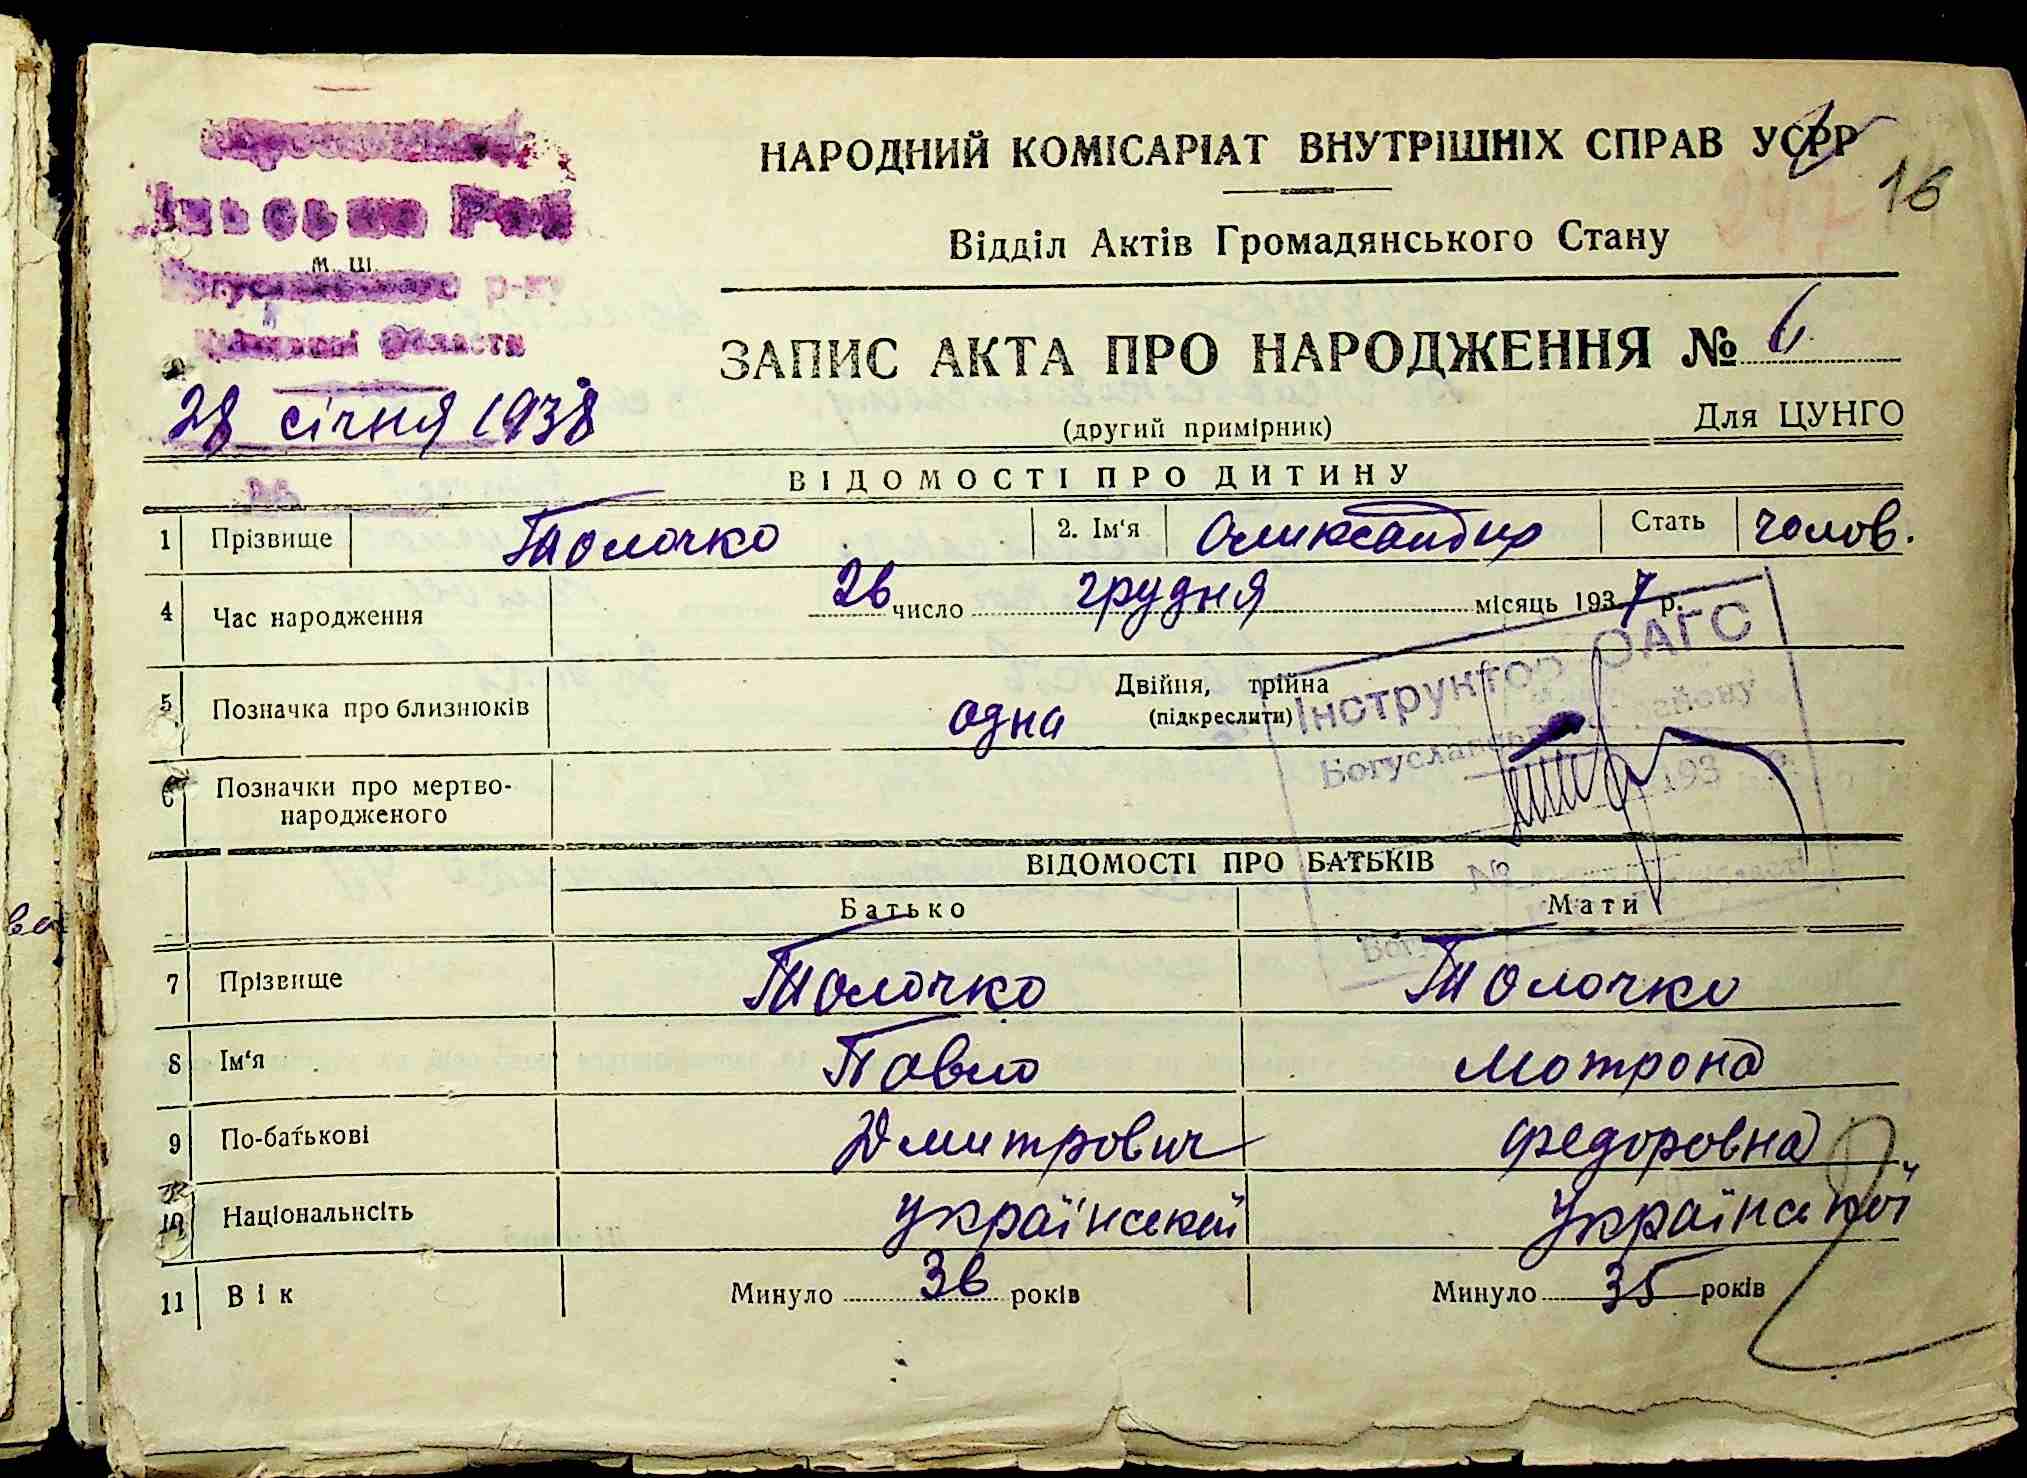 НАРОДНИЙ КОМІСАРІАТ ВНУТРІШНІХ СПРАВ УСРР
16
Відділ Актів Громадянського Стану
м. ш.
р-ну
Області
28 січня 1938
ЗАПИС АКТА ПРО НАРОДЖЕННЯ № 6
(другий примірник)
Для ЦУНГО
ВІДОМОСТІ ПРО ДИТИНУ
1 Прізвище Толочко 2. Ім'я Олександр Стать чолов.
4 Час народження 26 число грудня місяць 1937 р.
5 Позначка про близнюків одна Двійня, трійна
(підкреслити)
Інструктор ОАГС
Богуславського району
193 р.
№
6 Позначки про мертво-
народженого
ВІДОМОСТІ ПРО БАТЬКІВ
Батько Мати
7 Прізвище Толочко Толочко
8 Ім'я Павло Мотрона
9 По-батькові Дмитрович Федоровна
10 Національність української української
11 Вік Минуло 36 років Минуло 35 років